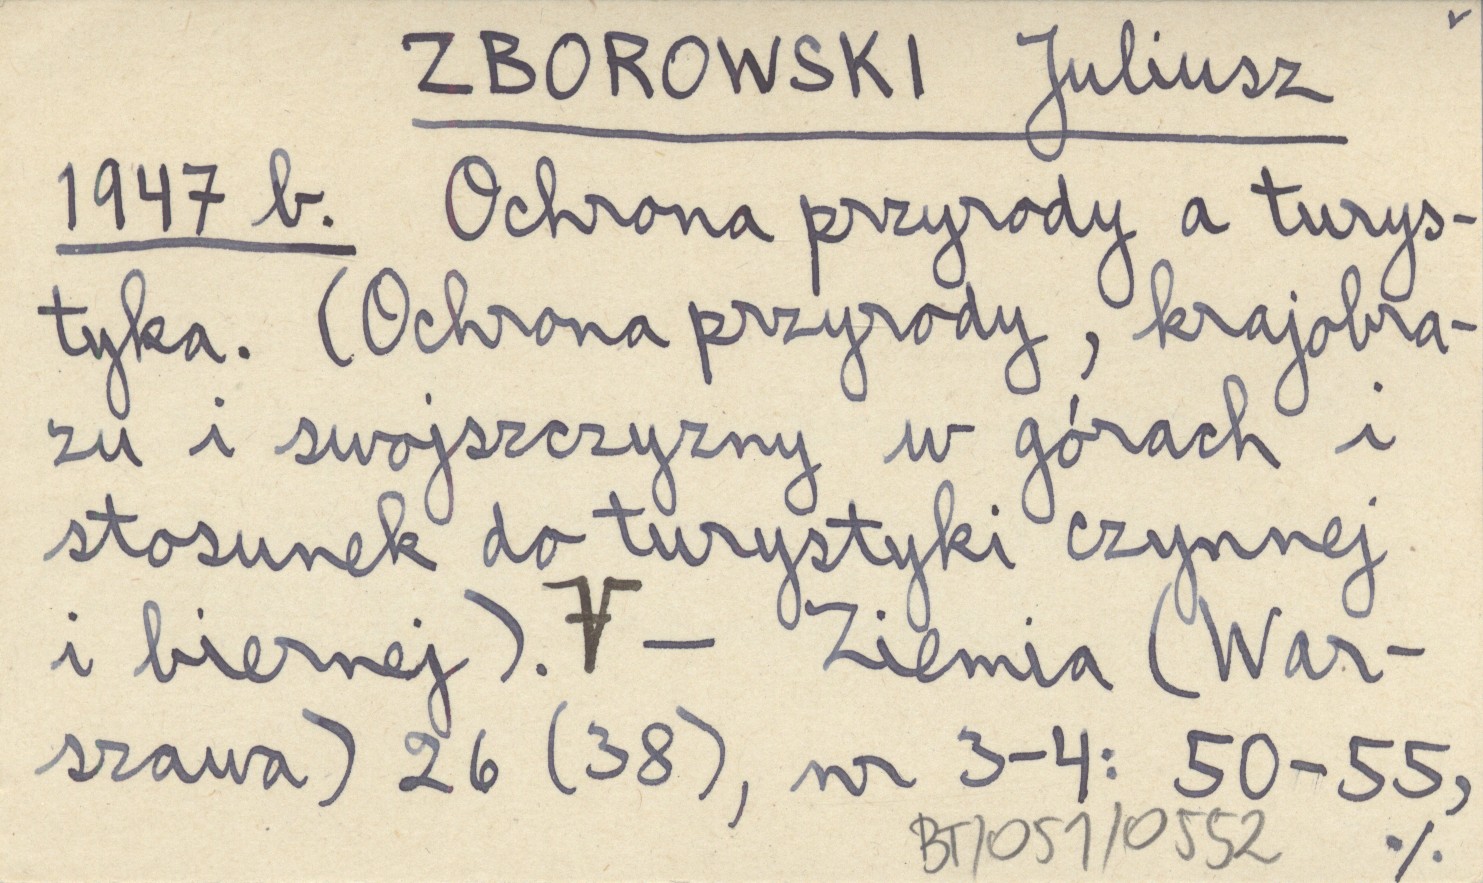 ZBOROWSKI Juliusz
1947 b. Ochrona przyrody a turys-
tyka. (Ochrona przyrody, krajobra-
zu i swojszczyzny w górach i
stosunek do turystyki czynnej
i biernej). — Ziemia (War-
szawa) 26 (38), nr 3-4: 50-55,
BT/051/0552 ./.